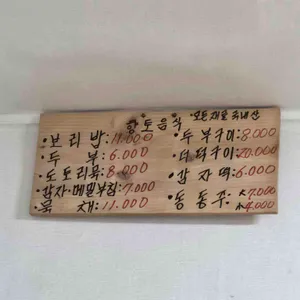 향토음식 모든재료 국내산
• 보리밥: 11.000
• 두부: 6.000
• 도토리묵: 8.000
• 감자·메밀부침: 7.000
• 묵채: 11.000
• 두부구이: 8.000
• 더덕구이: 20.000
• 감자떡: 6.000
• 동동주 大 7.000
小 4.000